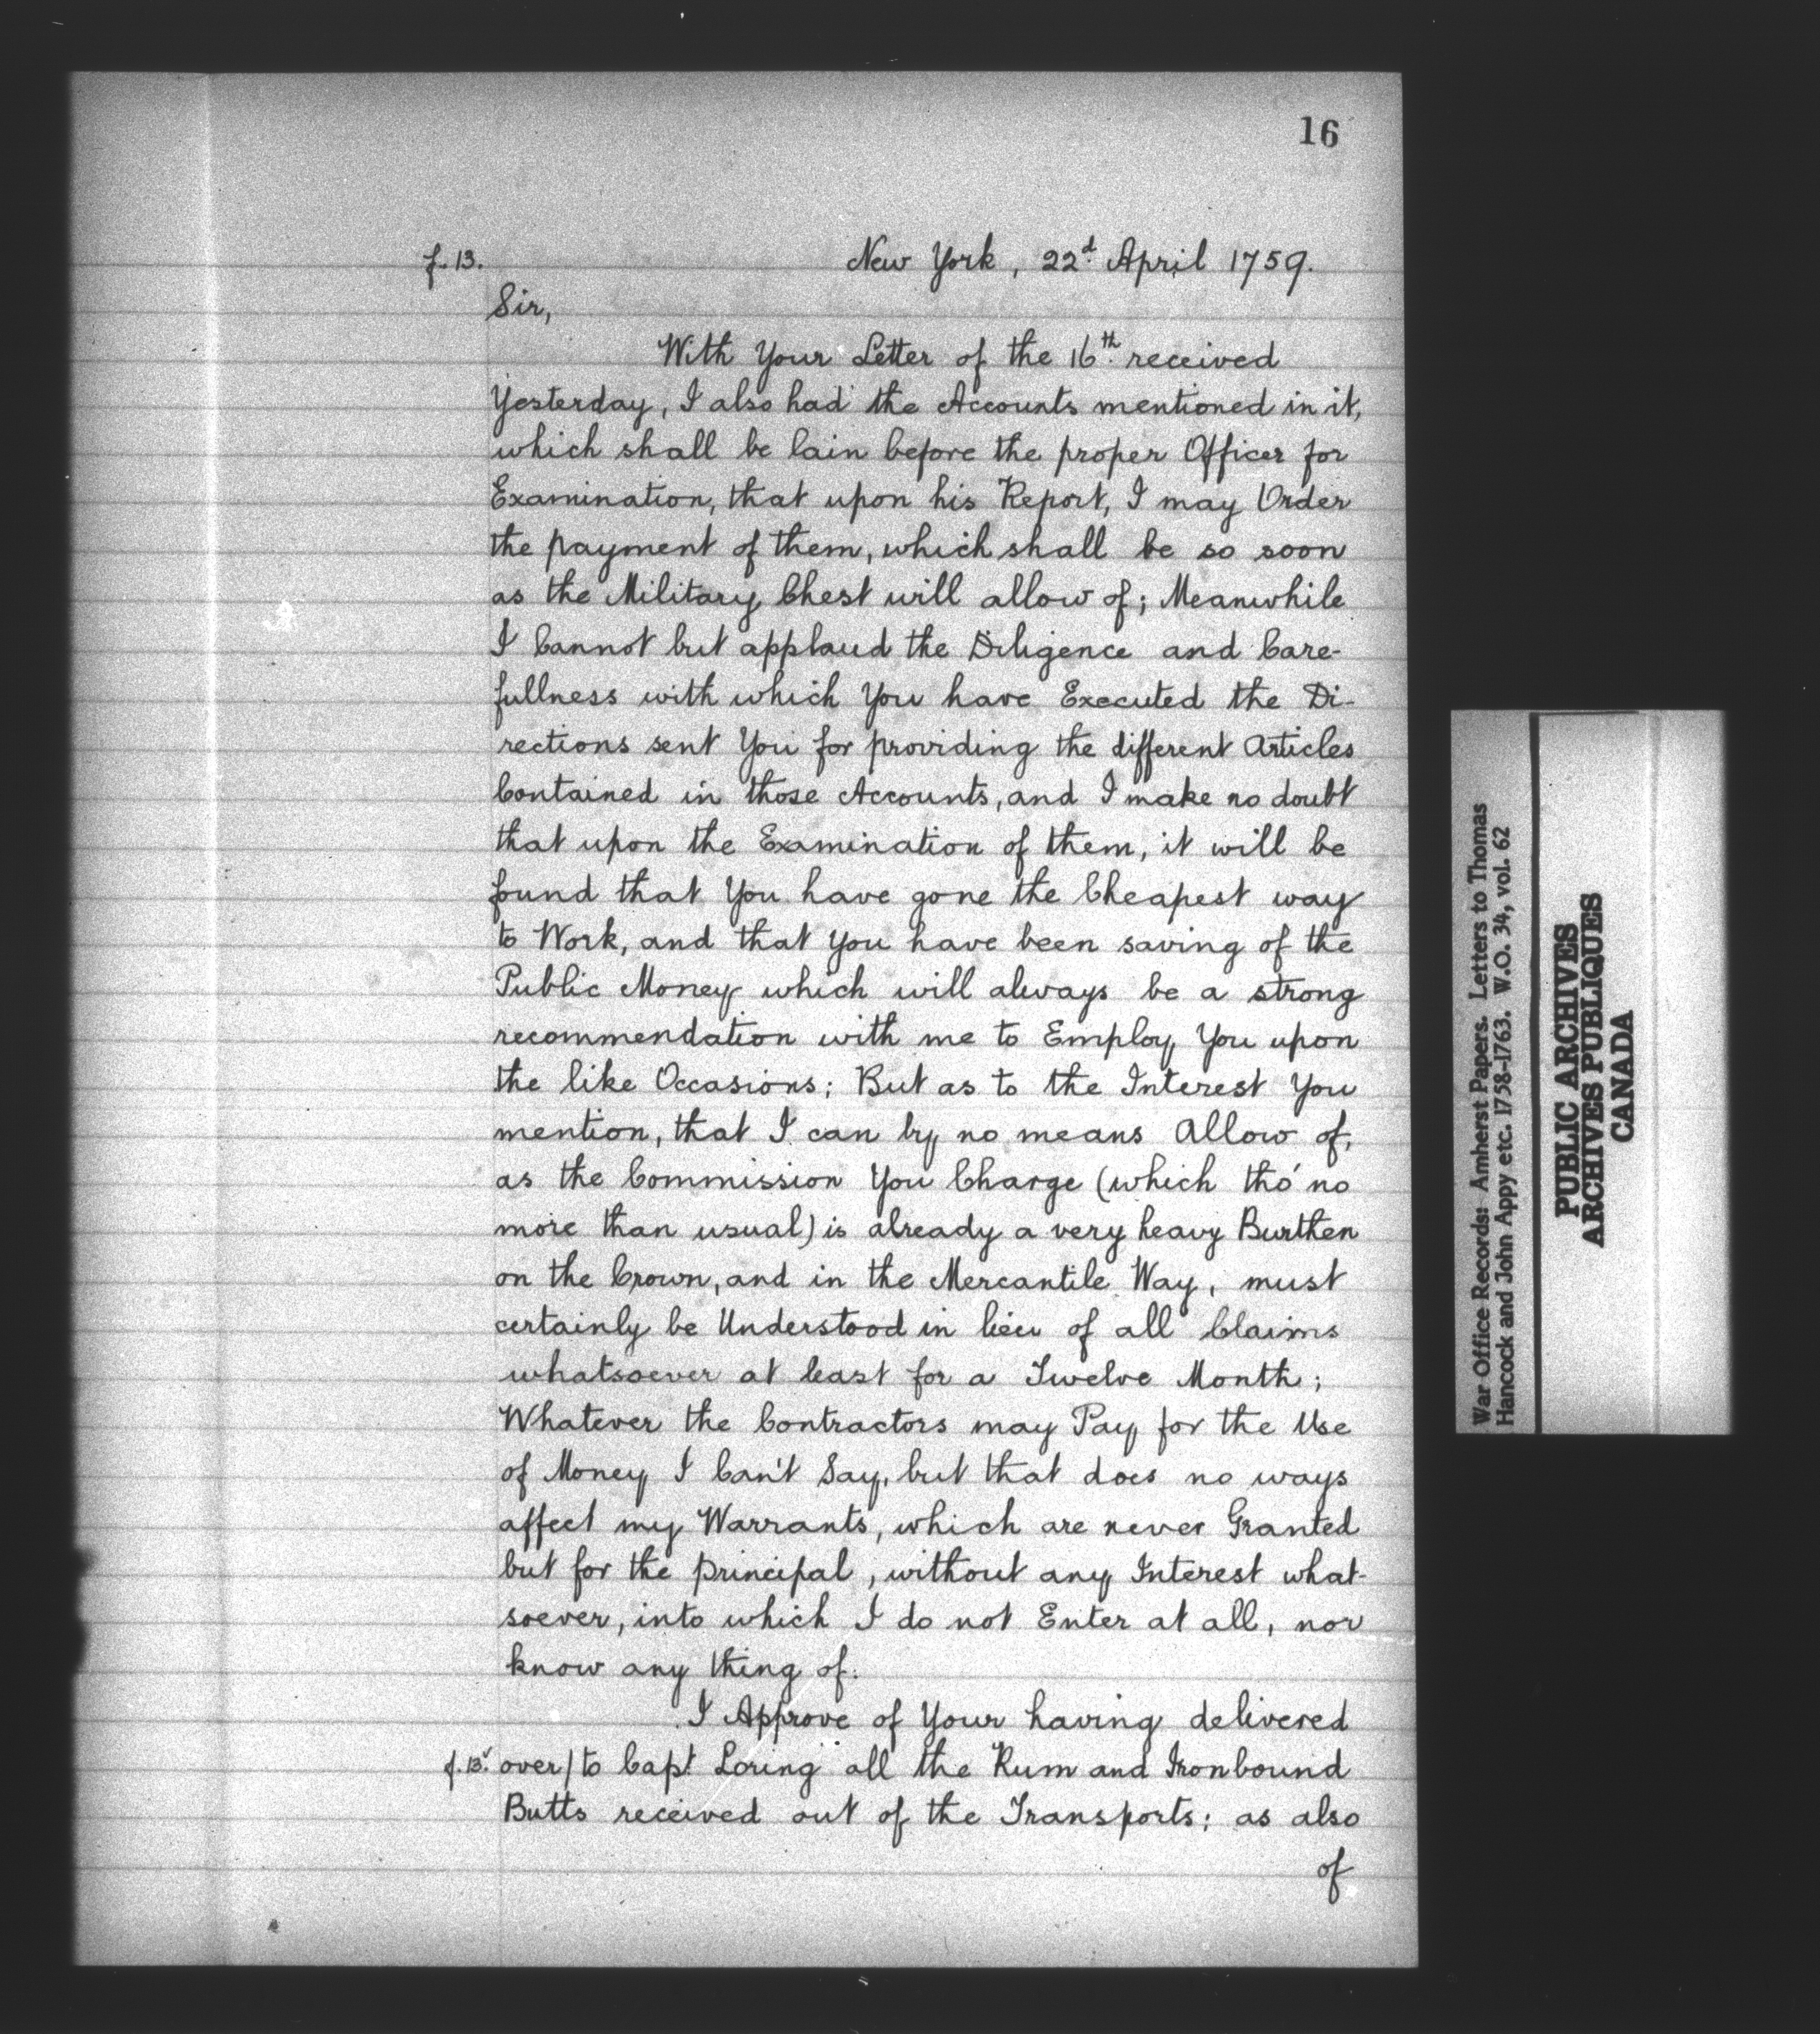 16
f. 13.
New York, 22d. April 1759.
Sir,
With Your Letter of the 16th. received
Yesterday, I also had the Accounts mentioned in it,
which shall be lain before the proper Officer for
Examination, that upon his Report, I may Order
the payment of them, which shall be so soon
as the Military Chest will allow of; Meanwhile
I Cannot but applaud the Diligence and Care-
fullness with which You have Executed the Di-
rections sent You for providing the different Articles
Contained in those Accounts, and I make no doubt
that upon the Examination of them, it will be
found that You have gone the Cheapest way
to Work, and that you have been saving of the
Public Money which will always be a strong
recommendation with me to Employ You upon
the like Occasions; But as to the Interest You
mention, that I can by no means Allow of,
as the Commission You Charge (which tho' no
more than usual) is already a very heavy Burthen
on the Crown, and in the Mercantile Way, must
certainly be Understood in lieu of all Claims
whatsoever at least for a Twelve Month;
Whatever the Contractors may Pay for the Use
of Money I Can't Say, but that does no ways
affect my Warrants, which are never Granted
but for the principal, without any Interest what-
soever, into which I do not Enter at all, nor
know any thing of.
I Approve of Your having delivered
f. 13v. over/ to Capt. Loring all the Rum and Ironbound
Butts received out of the Transports; as also
of
War Office Records: Amherst Papers. Letters to Thomas
Hancock and John Appy etc. 1758-1763. W.O. 34, vol. 62
PUBLIC ARCHIVES
ARCHIVES PUBLIQUES
CANADA